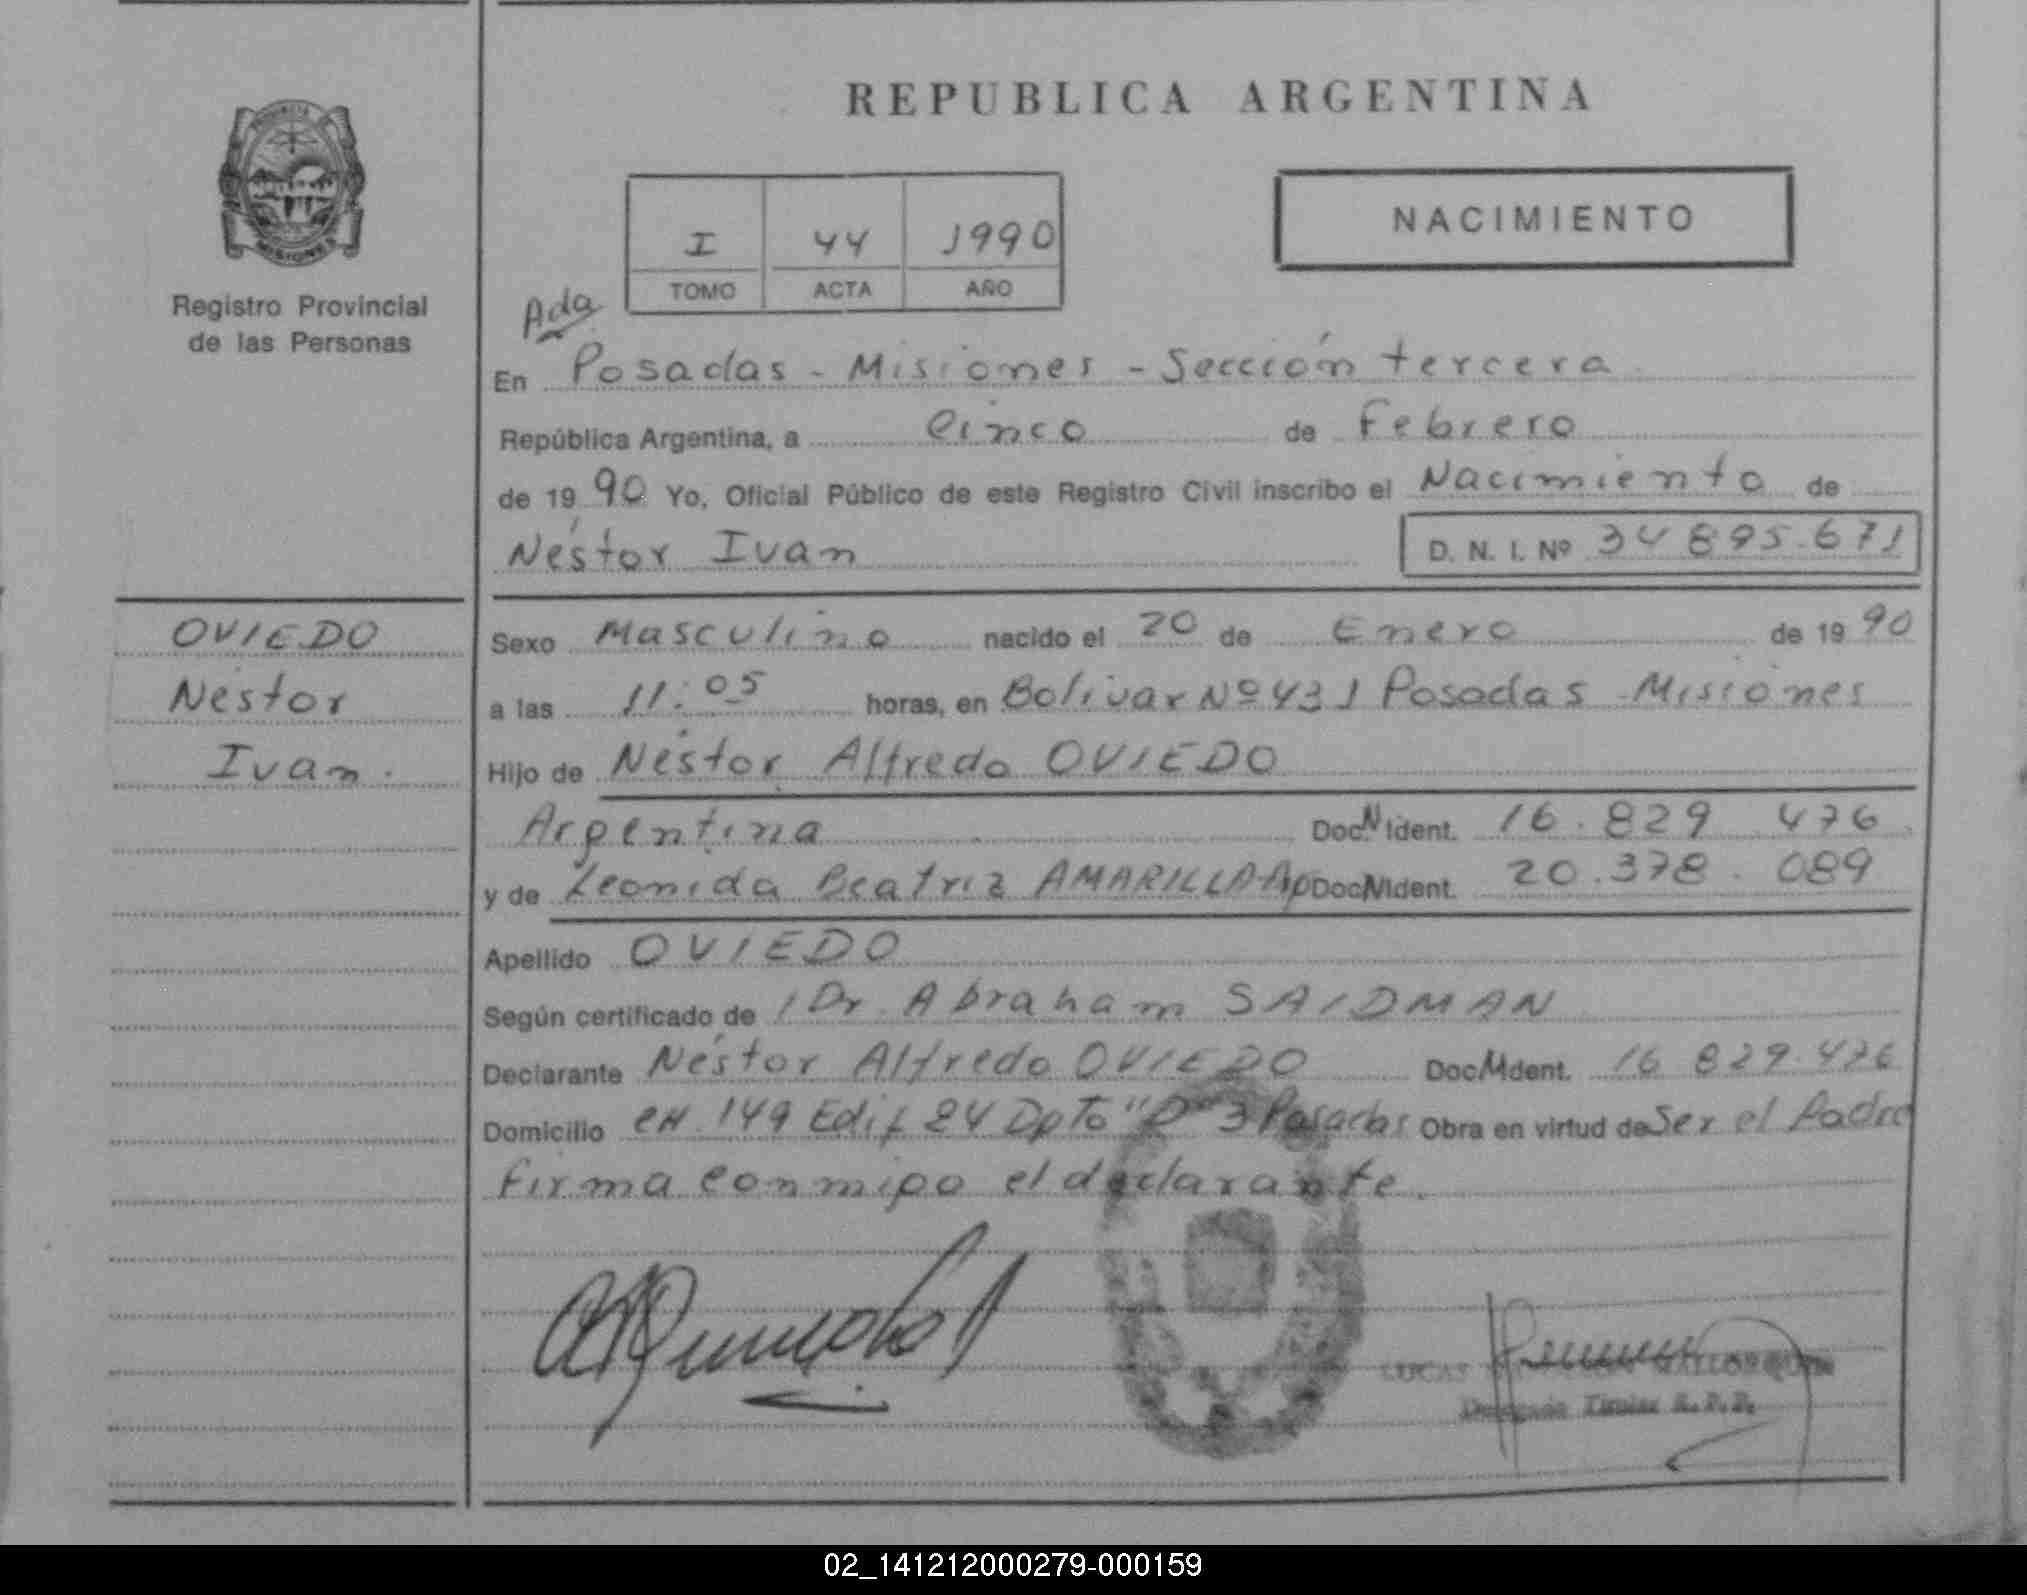 REPUBLICA ARGENTINA
PROVINCIA
MISIONES
Registro Provincial
de las Personas
I 44 1990
TOMO ACTA AÑO
NACIMIENTO
Ada
En Posadas - Misiones - Sección tercera
República Argentina, a Cinco de Febrero
de 19 90 Yo, Oficial Público de este Registro Civil inscribo el Nacimiento de
Néstor Ivan D. N. I. Nº 34 895.671
OVIEDO
Néstor
Ivan.
Sexo Masculino nacido el 20 de Enero de 19 90
a las 11:05 horas, en Bolivar Nº 431 Posadas - Misiones
Hijo de Néstor Alfredo OVIEDO
Argentina Doc. N Ident. 16.829 476
y de Leonida Beatriz AMARILLA-Ap Doc N Ident. 20.378.089
Apellido OVIEDO
Según certificado de Dr. Abraham SAIDMAN
Declarante Néstor Alfredo OVIEDO Doc N Ident. 16 829.476
Domicilio CH. 149 Edif 24 Dpto "D" 3 Posadas Obra en virtud de Ser el Padre
Firma conmigo el declarante.
LUCAS
Delegado Titular R.P.P.
02_141212000279-000159